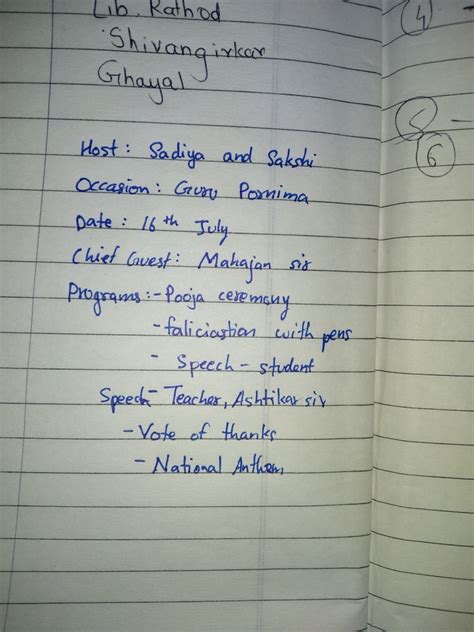 Lib. Rathod
Shivangirkar
Ghayal
Host: Sadiya and Sakshi
Occasion: Guru Pornima
Date: 16th July
Chief Guest: Mahajan sir
Programs:- Pooja ceremony
- faliciastion with pens
- Speech - student
Speech - Teacher, Ashtikar sir
- Vote of thanks
- National Anthem
4 -
5 -
6